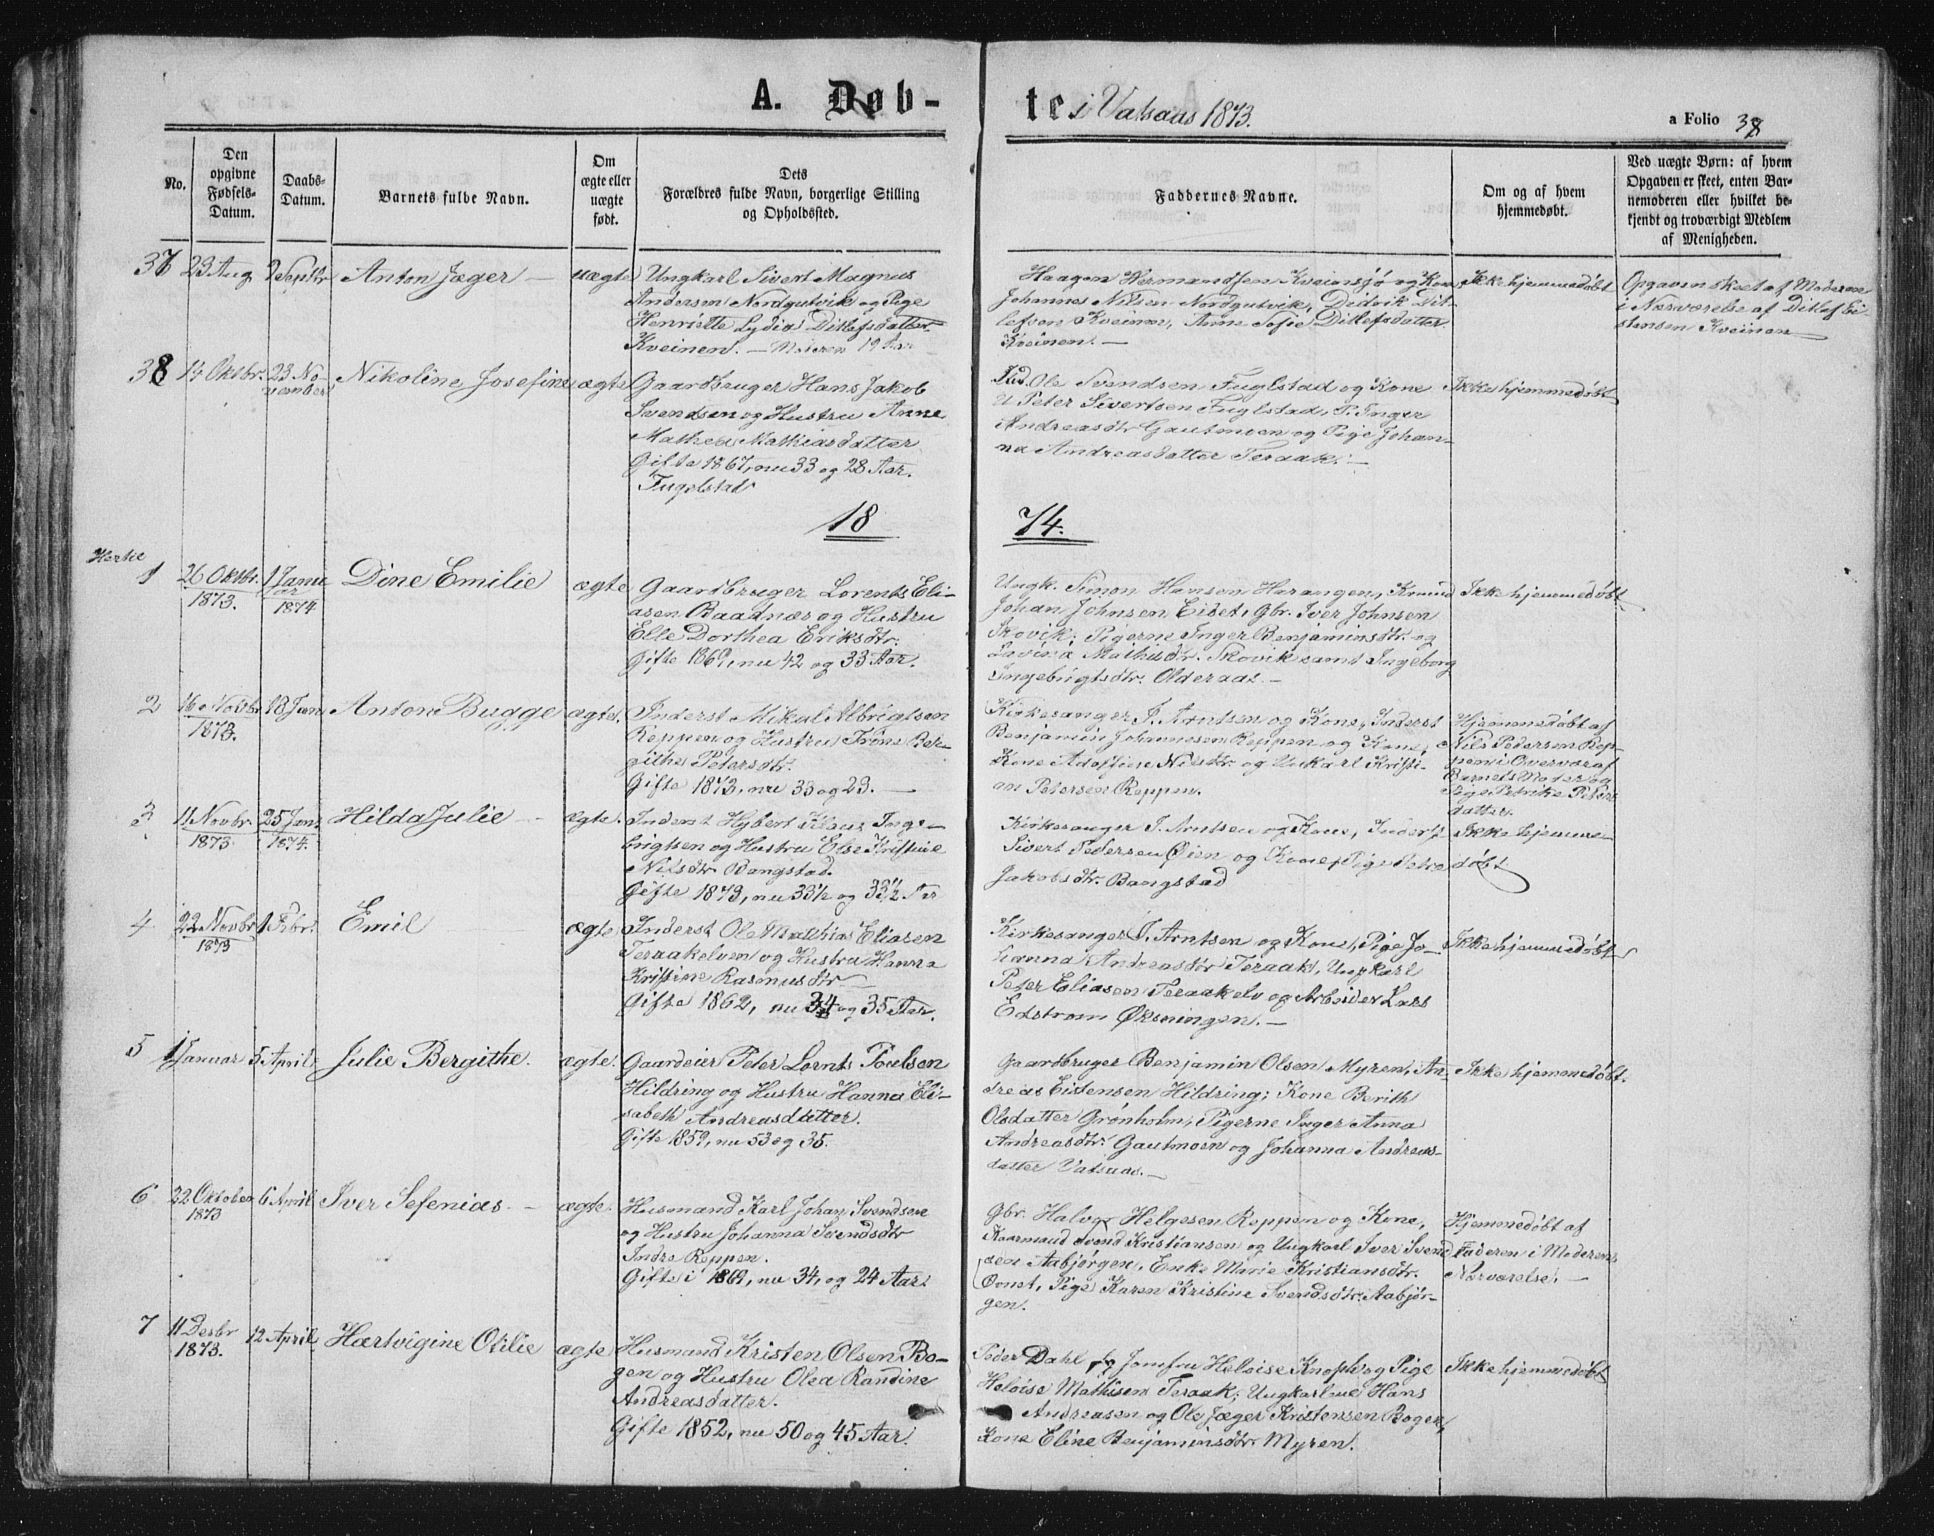 A. Døb-
te i Vatsaas 1873.
a Folio 38
No.
Den opgivne Fødsels-Datum.
Daabs-Datum.
Barnets fulde Navn.
Om ægte eller uægte født.
Dets Forældres fulde Navn, borgerlige Stilling og Opholdssted.
Faddernes Navne.
Om og af hvem hjemmedøbt.
Ved uægte Børn: af hvem Opgaven er skeet, enten Barnemoderen eller hvilket bekjendt og troværdigt Medlem af Menigheden.
37 23 Aug 2 Septbr Anton Jæger — uægte
Ungkarl Sivert Magnus
Andersen Nordgutvik og Pige
Henriette Lydia Ditlefsdatter
Kveinen. — Moderen 19 Aar
Haagen Hermandsen Kveinsjø og Kone
Johannes Nilsen Nordgutvik, Didrik Dit-
lefsen Kveinen, Anne Sofie Ditlefsdatter
Kveinen. —
Ikke hjemmedøbt
Opgaven skeet af Moderen
i Nærværelse af Ditlef
Kveinen
38 14 Oktbr. 23 No-
vember
Nikoline Josefine ægte
Gaardbruger Hans Jakob
Svendsen og Hustru Anne
Mathea Mathiasdatter
Gifte 1867, nu 33 og 28 Aar.
Fugelstad
Ole Svendsen Fuglstad og Kone
U Peter Sivertsen Fuglstad, P. Inger
Andreasdtr Gautmoen og Pige Johan-
na Andreasdatter Teraak. —
Ikke hjemmedøbt
1874.
1 26 Oktbr.
1873.
1 Janu
ar
1874
Dine Emilie ægte
Gaardbruger Lorents Eli-
asen Baadnæs og Hustru
Elle Dorthea Eriksdtr.
Gifte 1869, nu 42 og 33 Aar.
Ungk. Simon Hansen Harangen,
Johan Johnsen Eidet, Gbr. Iver Johnsen
Skovik; Pigerne Inger Benjaminsdtr. og
Lavina Skovik samt Ingeborg
Ingebrigtsdtr. Olderaas. —
Ikke hjemmedøbt
2 16 Novbr
1873.
18 Jan Anton Bugge ægte.
Inderst Mikal Albrigtsen
Reppen og Hustru Trine Ber-
githe Petersdtr.
Gifte 1873, nu 33 og 23. —
Kirkesanger J. Arntsen og Kone, Inderst
Benjamin Johannesen Reppen og Kone,
Kone Adolfine Nilsdtr. og Unkarl Kristi-
an Petersen Reppen.
Hjemmedøbt af
Nils Pedersen Rep-
pen i Overvær af
Barnets Moder og
Pige Petrike Peters
datter.
3 11 Novbr.
1873.
25 Jan.
1874.
Hilda Julie — ægte.
Inderst Hybert Klaus Inge-
brigtsen og Hustru Olse Kristine
Nilsdtr. Bangstad.
Gifte 1873, nu 33½ og 33½ Aar
Kirkesanger J. Arntsen og Kone, Inderst
Sivert Pedersen Øien og Kone, Pige Petra
Jakobsdtr. Bangstad
Ikke hjemme-
døbt
4 22 Novbr
1873
1 Febr. Emil ægte
Inderst Ole Mathias Eliasen
Teraakelven og Hustru Hanna
Kristine Rasmusdtr —
Gifte 1862, nu 34 og 35 Aar.
Kirkesanger J. Arntsen og Kone, Pige Jo-
hanna Andreasdtr Teraak, Ungkarl
Peter Eliasen Teraakelv og Arbeider Lars
Edstrom Øksningen. —
Ikke hjemmedøbt
5 1 Januar 5 April Julie Bergithe. ægte.
Gaardeier Peter Lornts Poulsen
Hildring og Hustru Hanna Eli-
sabeth Andreasdatter.
Gifte 1859, nu 53 og 35.
Gaardbruger Benjamin Olsen Myren, An-
dreas Eidensen Hildring; Kone Berith
Olsdatter Grønholm, Pigerne Inger Anna
Andreasdtr. Gautmoen og Johanna Andreas-
datter Vatsaas. —
Ikke hjemmedøbt.
6 22 Oktober
1873
6 April Iver Sefenias — ægte.
Husmand Karl Johan Svendsen
og Hustru Johanna Svendsdtr
Indre Reppen.
Gifte i 1869, nu 34, og 24 Aar
Gbr. Halvor Helgesen Reppen og Kone,
Kaarmand Svend Kristiansen og Ungkarl Iver Svend
sen Aabjørgen, Enke Marie Kristiansdtr.
Pige Karen Kristine Svendsdtr. Aabjør-
gen.
Hjemmedøbt af
Faderen i Moderens
Nærværelse. —
7 11 Desbr
1873.
12 April Hartvigine Otilie ægte
Husmand Kristen Olsen Bo-
gen og Hustru Olea Randine
Andreasdatter.
Gifte 1852, nu 50 og 45 Aar.
Peder Dahl og Jomfru Heloise Knoph og Pige
Heloise Mathisen Teraak; Ungkarlene Hans
Andreasen og Ole Jæger Kristensen Bogen,
Kone Eline Benjaminsdtr Myren.
Ikke hjemmedøbt